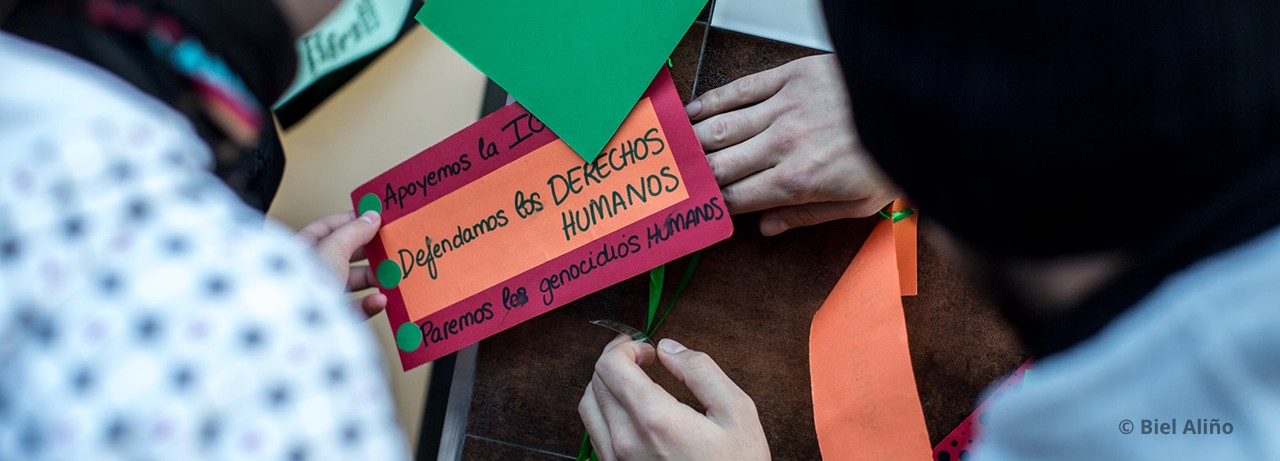 Apoyemos la
Defendamos los DERECHOS
HUMANOS
Paremos los genocidios HUMANOS
© Biel Aliño